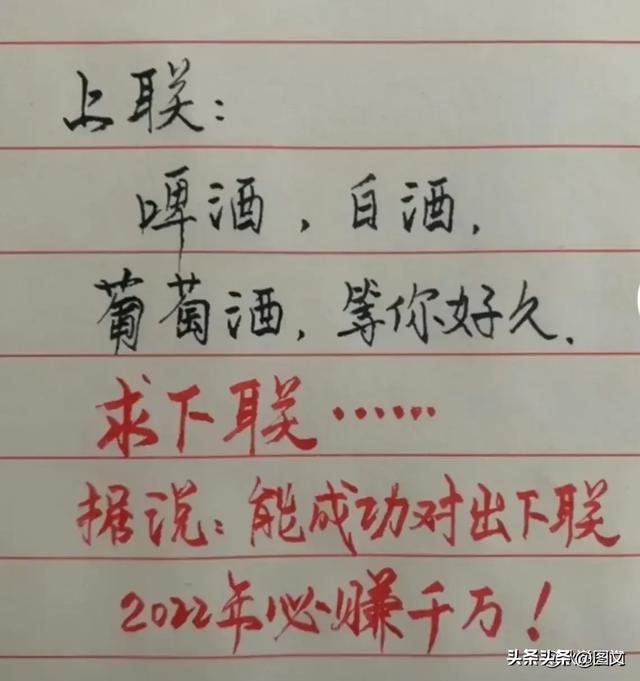 上联：
啤酒，白酒，
葡萄酒，等你好久.
求下联……
据说：能成功对出下联
2022年必赚千万！
头条头条@图文